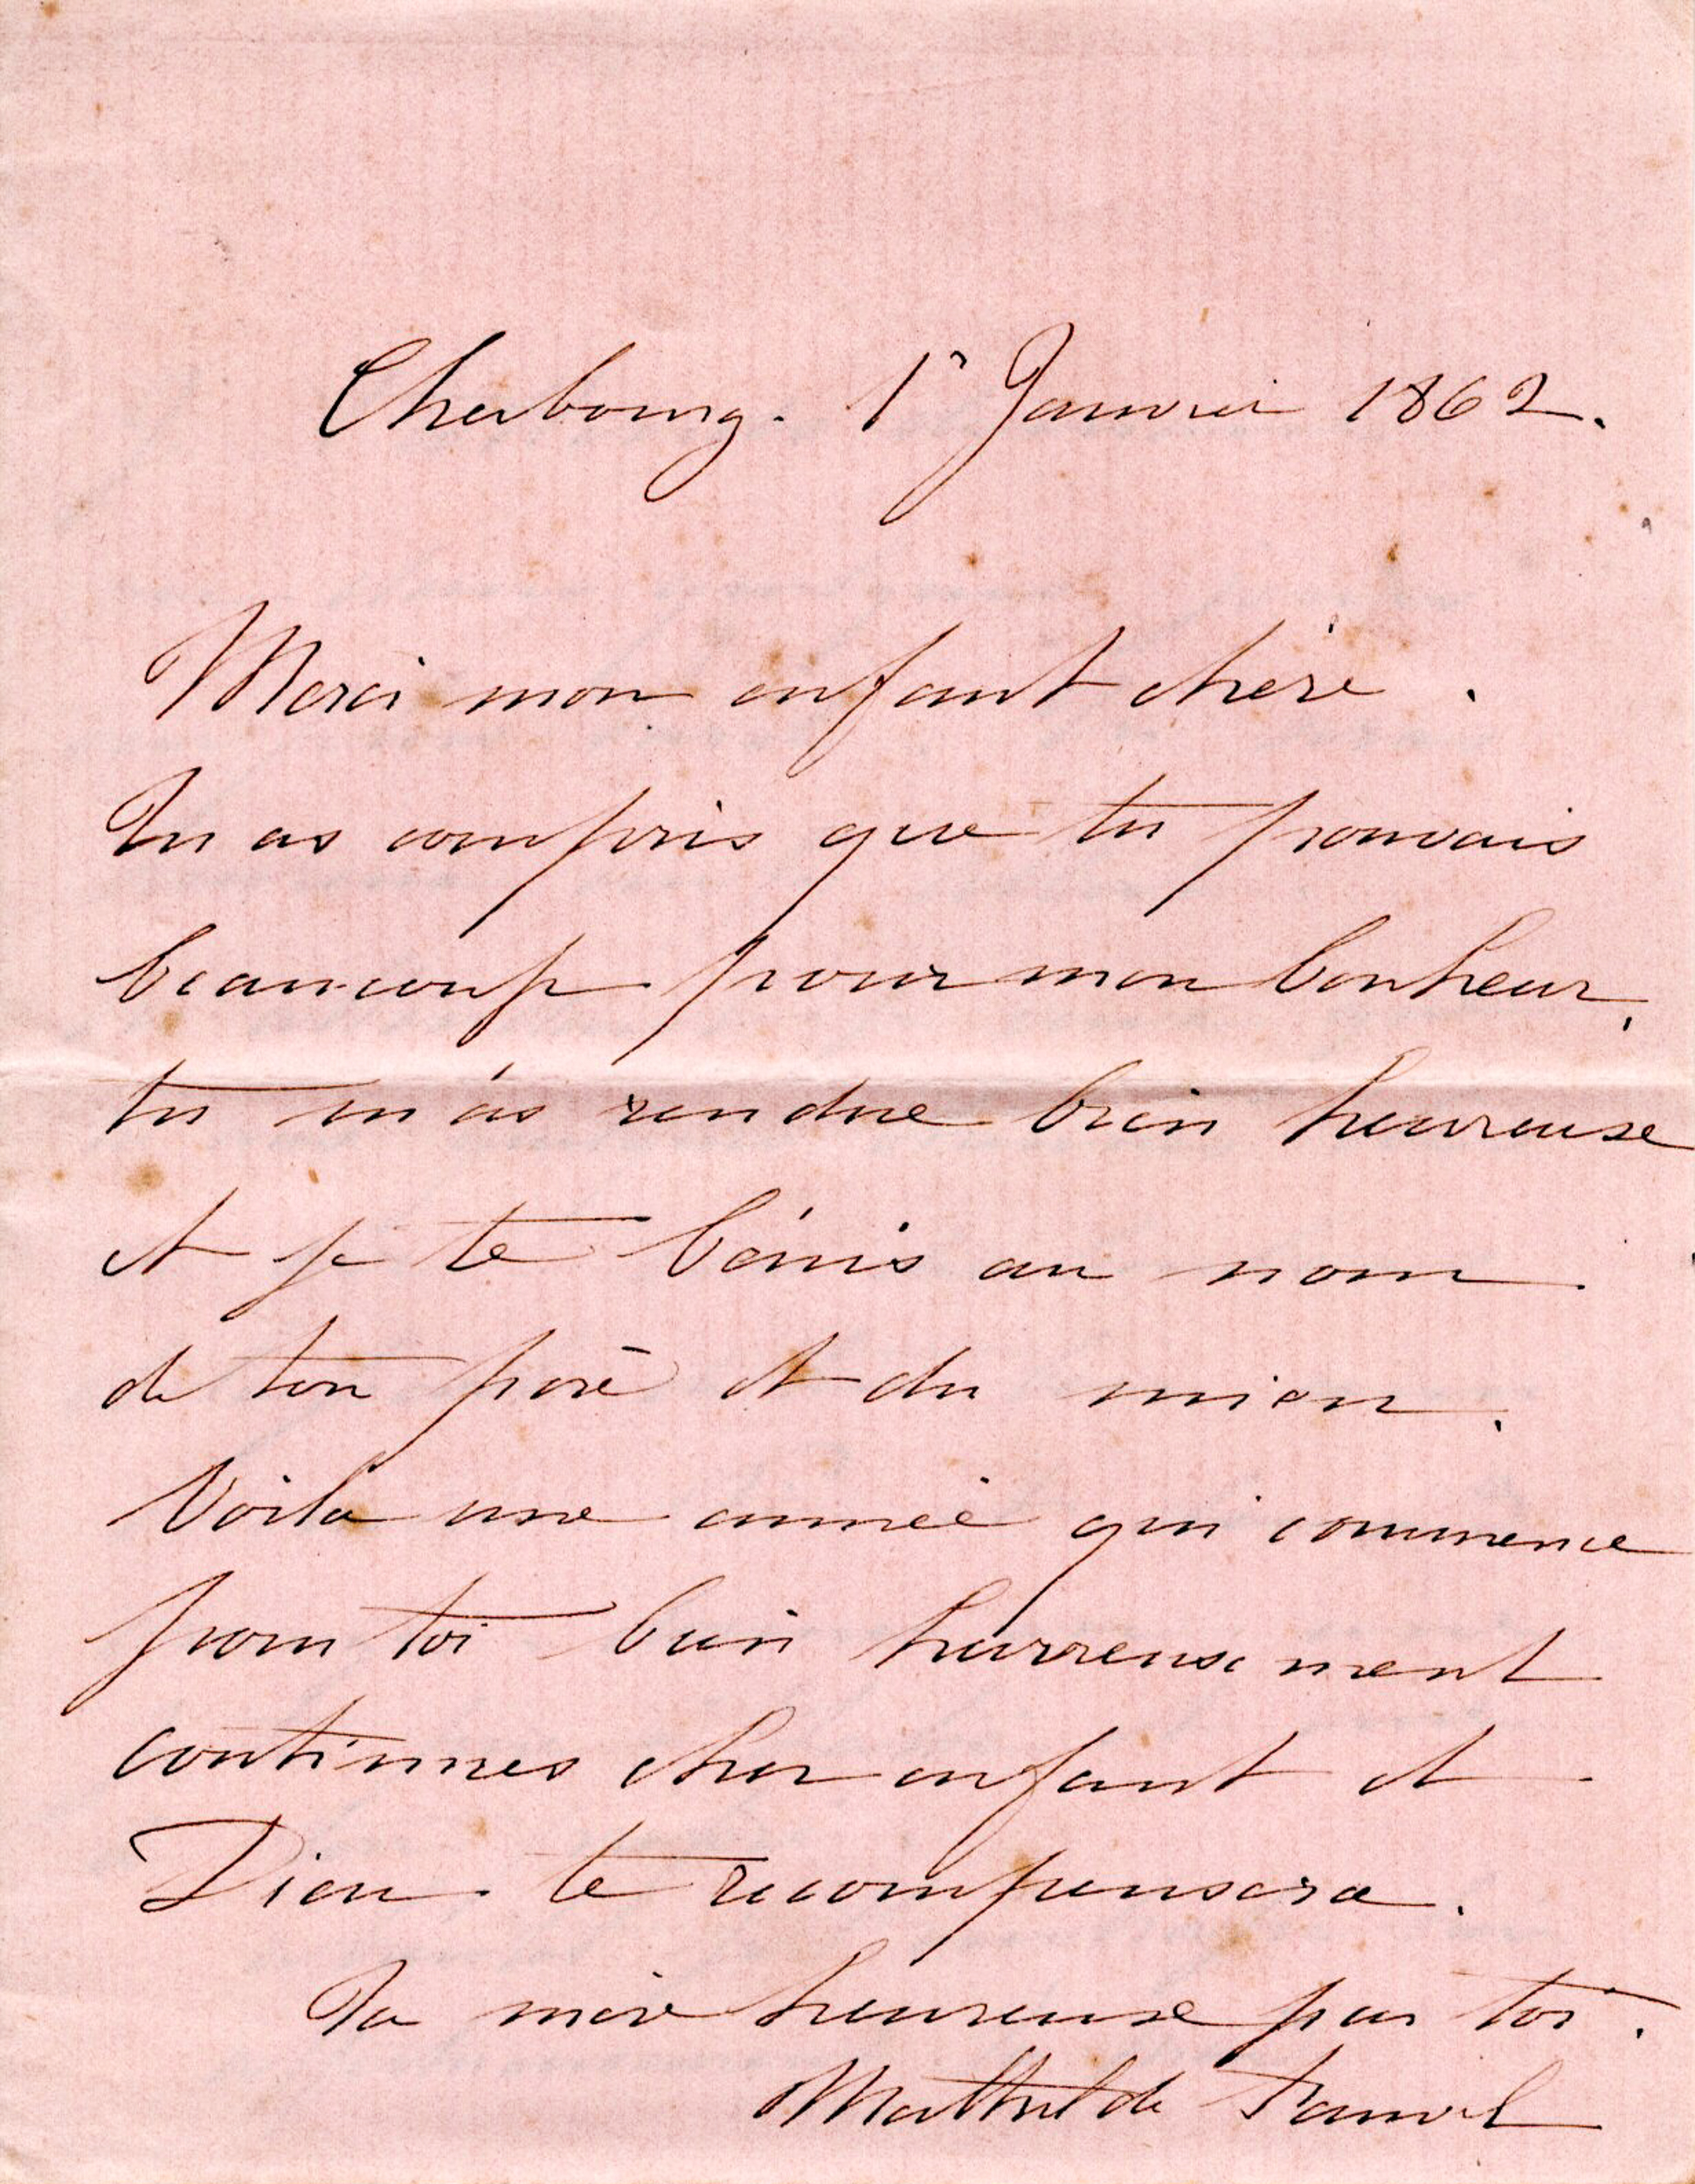 Cherbourg. 1r Janvier 1862.
Merci mon enfant chéri.
Tu as compris que tu pouvais
beaucoup pour mon bonheur,
tu m'as rendue bien heureuse
et je te bénis au nom
de ton père et du mien.
Voila une année qui commence
pour toi bien heureusement
continues cher enfant et
Dieu te recompensera.
Ta mère heureuse par toi.
Mathilde